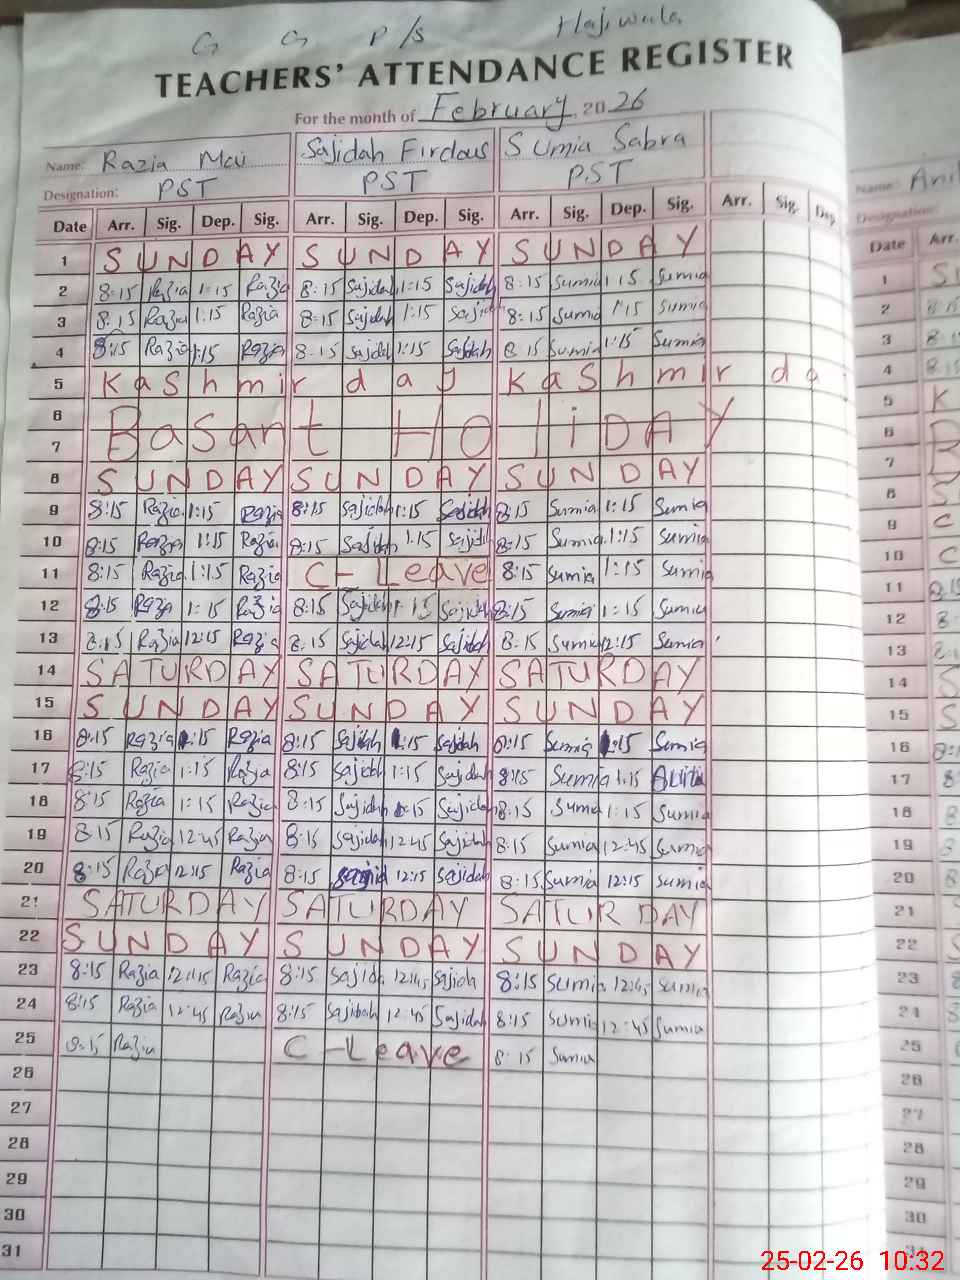 G G P/S Hajiwala
TEACHERS' ATTENDANCE REGISTER
For the month of February, 2026
Name: Razia Mai Sajidah Firdous Sumia Sabra
Designation: PST PST PST
Date Arr. Sig. Dep. Sig. Arr. Sig. Dep. Sig. Arr. Sig. Dep. Sig. Arr. Sig. Dep
1 SUNDAY SUNDAY SUNDAY
2 8:15 Razia 1:15 Razia 8:15 Sajidah 1:15 Sajidah 8:15 Sumia 1:15 Sumia
3 8:15 Razia 1:15 Razia 8:15 Sajidah 1:15 Sajidah 8:15 Sumia 1:15 Sumia
4 8:15 Razia 1:15 Razia 8:15 Sajidah 1:15 Sajidah 8:15 Sumia 1:15 Sumia
5 Kashmir day Kashmir da
6
7 Basant HoliDAY
8 SUNDAY SUNDAY SUNDAY
9 8:15 Razia 1:15 Razia 8:15 Sajidah 1:15 Sajidah 8:15 Sumia 1:15 Sumia
10 8:15 Razia 1:15 Razia 8:15 Sajidah 1:15 Sajidah 8:15 Sumia 1:15 Sumia
11 8:15 Razia 1:15 Razia C-Leave 8:15 Sumia 1:15 Sumia
12 8:15 Razia 1:15 Razia 8:15 Sajidah 1:15 Sajidah 8:15 Sumia 1:15 Sumia
13 8:15 Razia 12:15 Razia 8:15 Sajidah 12:15 Sajidah 8:15 Sumia 12:15 Sumia
14 SATURDAY SATURDAY SATURDAY
15 SUNDAY SUNDAY SUNDAY
16 8:15 Razia 1:15 Razia 8:15 Sajidah 1:15 Sajidah 8:15 Sumia 1:15 Sumia
17 8:15 Razia 1:15 Razia 8:15 Sajidah 1:15 Sajidah 8:15 Sumia 1:15
18 8:15 Razia 1:15 Razia 8:15 Sajidah 1:15 Sajidah 8:15 Sumia 1:15 Sumia
19 8:15 Razia 12:45 Razia 8:15 Sajidah 12:45 Sajidah 8:15 Sumia 12:45 Sumia
20 8:15 Razia 12:15 Razia 8:15 12:15 Sajidah 8:15 Sumia 12:15 Sumia
21 SATURDAY SATURDAY SATURDAY
22 SUNDAY SUNDAY SUNDAY
23 8:15 Razia 12:45 Razia 8:15 Sajidah 12:45 Sajidah 8:15 Sumia 12:45 Sumia
24 8:15 Razia 12:45 Razia 8:15 Sajidah 12:45 Sajidah 8:15 Sumia 12:45 Sumia
25 8:15 Razia C-Leave 8:15 Sumia
26
27
28
29
30
31
Name:
Designation:
Date Arr.
1
2
3
4
5 K
6
7
8
9
10
11
12
13
14
15
16
17
18
19
20
21
22
23
24
25
26
27
28
29
30
25-02-26 10:32